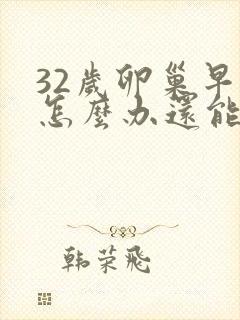 32歲卵巢早
怎麼办還能
韩荣飛